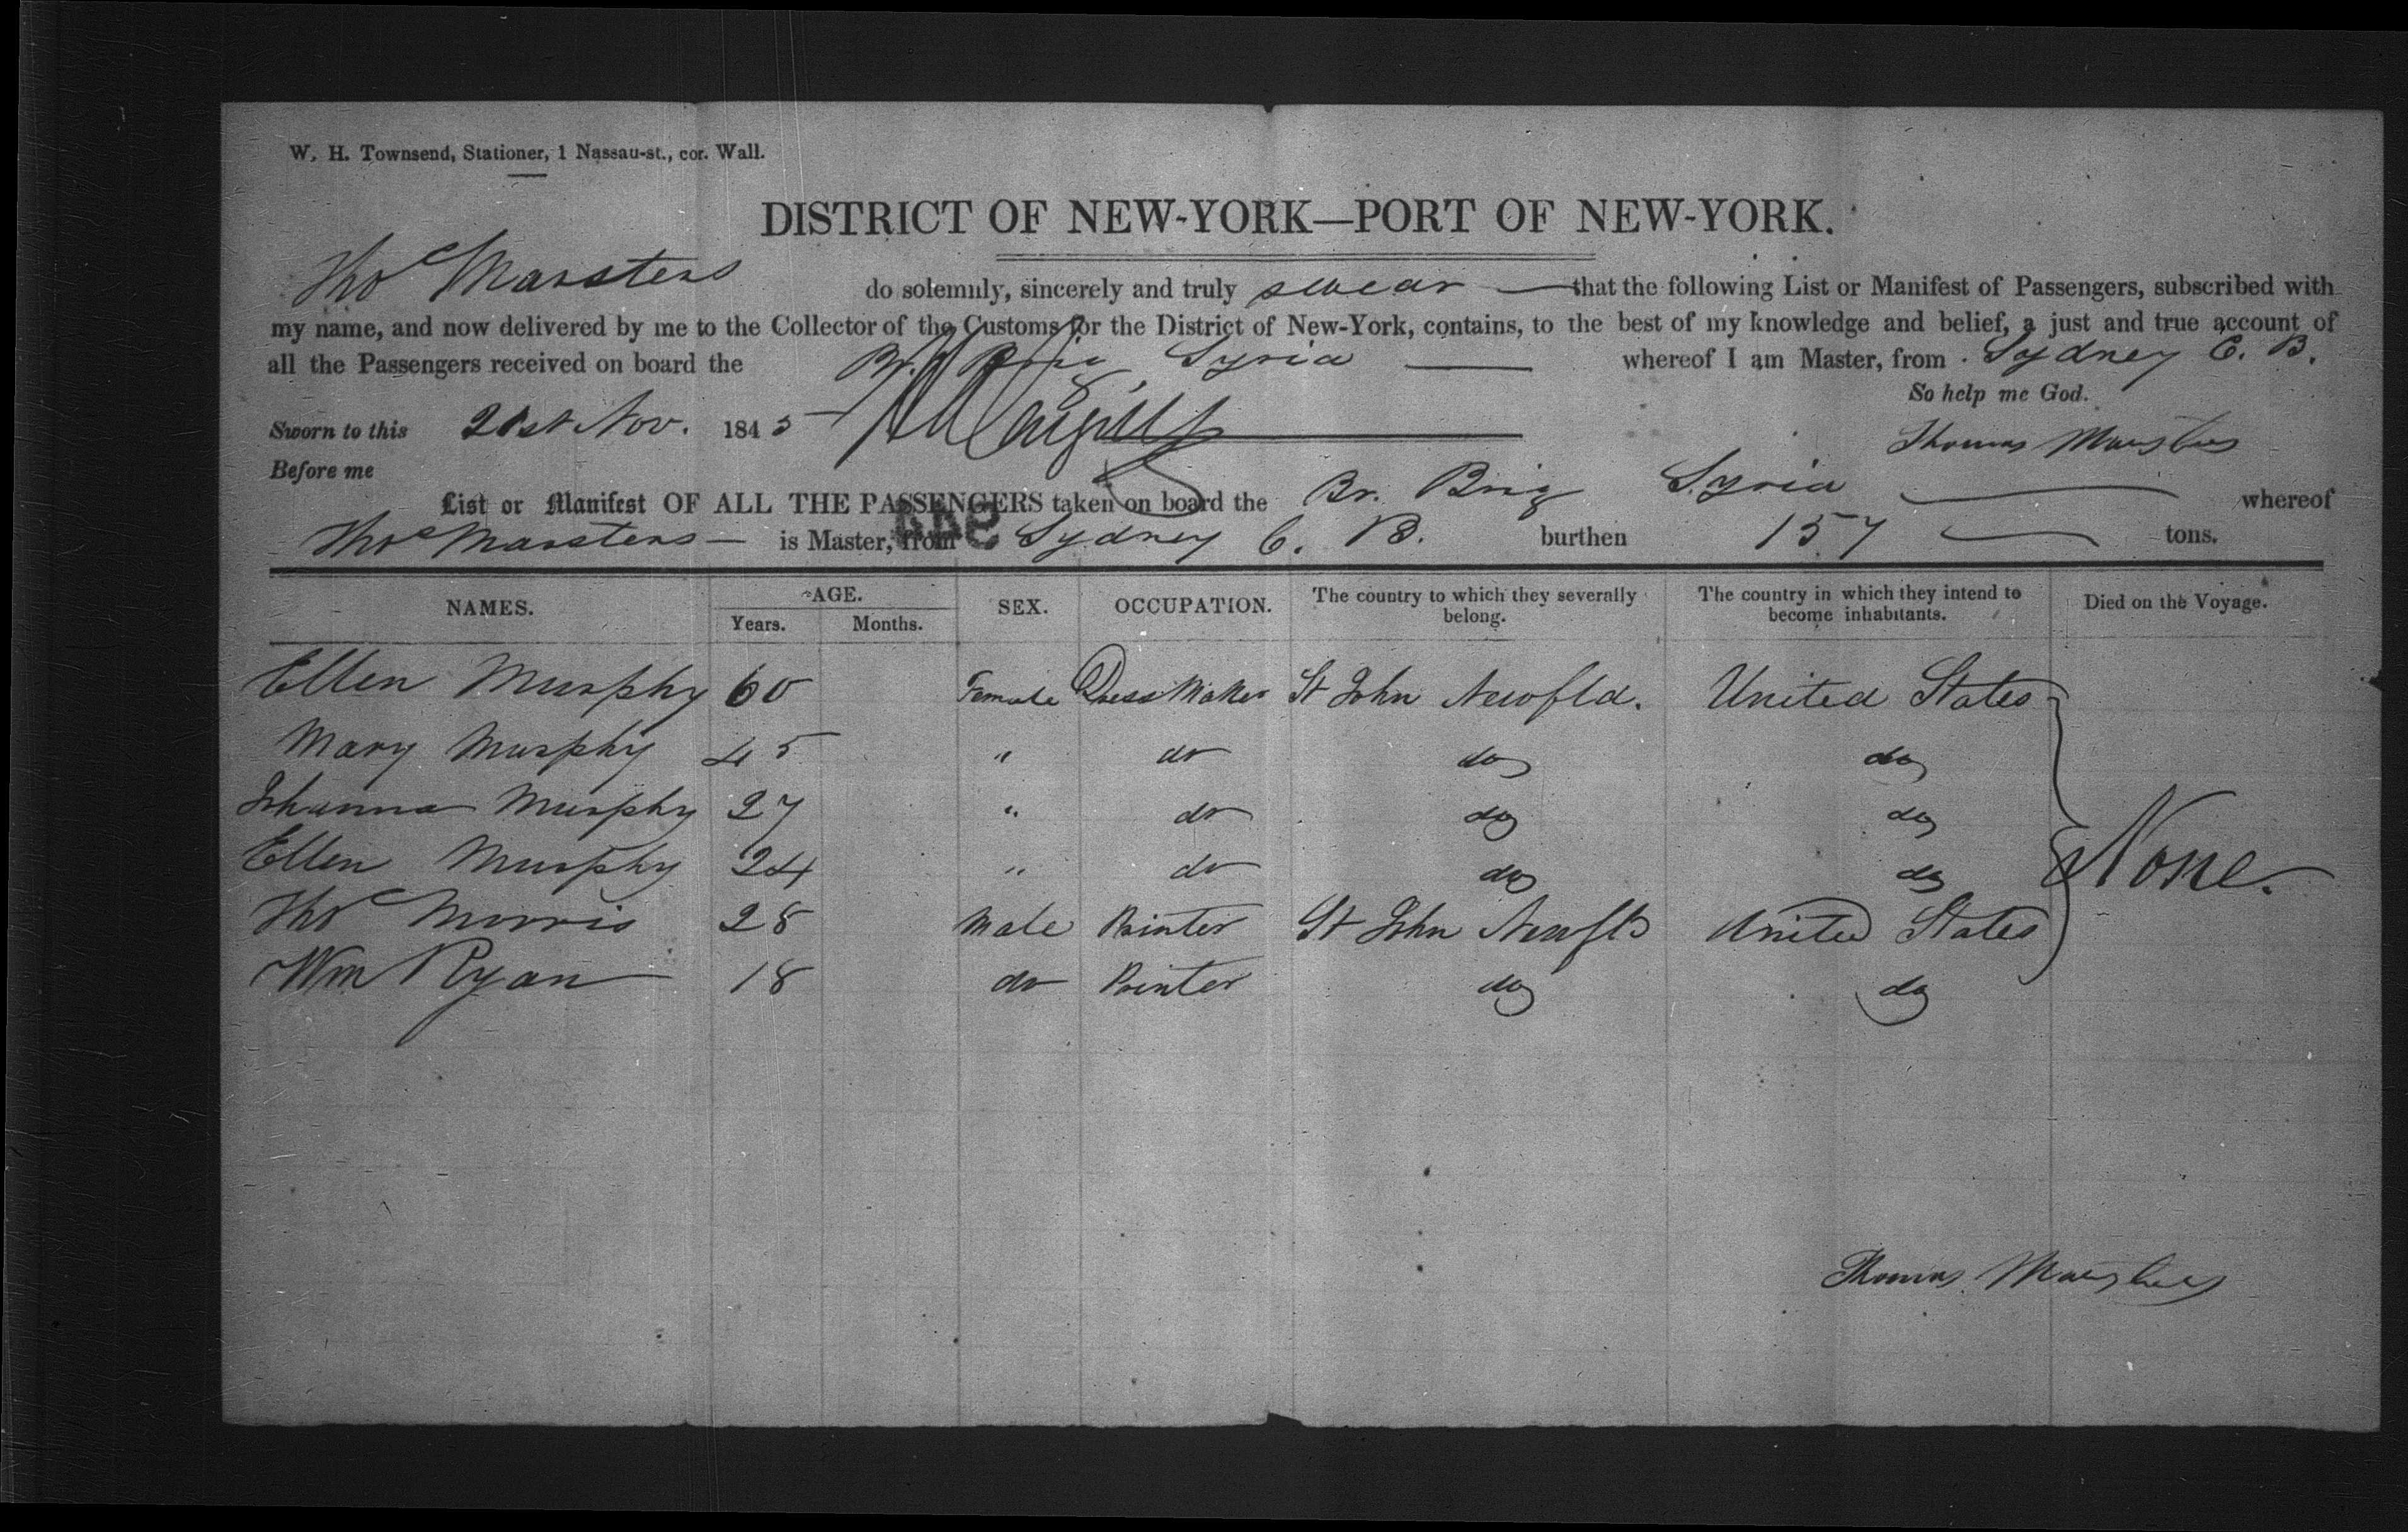 W. H. Townsend, Stationer, 1 Nassau-st., cor. Wall.
DISTRICT OF NEW-YORK—PORT OF NEW-YORK.
Thos Marsters do solemnly, sincerely and truly swear — that the following List or Manifest of Passengers, subscribed with
my name, and now delivered by me to the Collector of the Customs for the District of New-York, contains, to the best of my knowledge and belief, a just and true account of
all the Passengers received on board the Br. Brig Syria — whereof I am Master, from Sydney C. B.
So help me God.
Sworn to this 21st Nov. 1845 Thomas Marsters
Before me
List or Manifest OF ALL THE PASSENGERS taken on board the Br. Brig Syria — whereof
Thos Marsters — is Master, from Sydney C. B. burthen 157 — tons.
NAMES. AGE. Years. Months. SEX. OCCUPATION. The country to which they severally belong. The country in which they intend to become inhabitants. Died on the Voyage.
Ellen Murphy 60 Female Dress Maker St John Newfld. United States
Mary Murphy 45 " do do do
Johanna Murphy 27 " do do do
Ellen Murphy 24 " do do do None.
Thos Morris 28 Male Painter St John Newfld United States
Wm Ryan 18 do Printer do do
Thomas Marsters